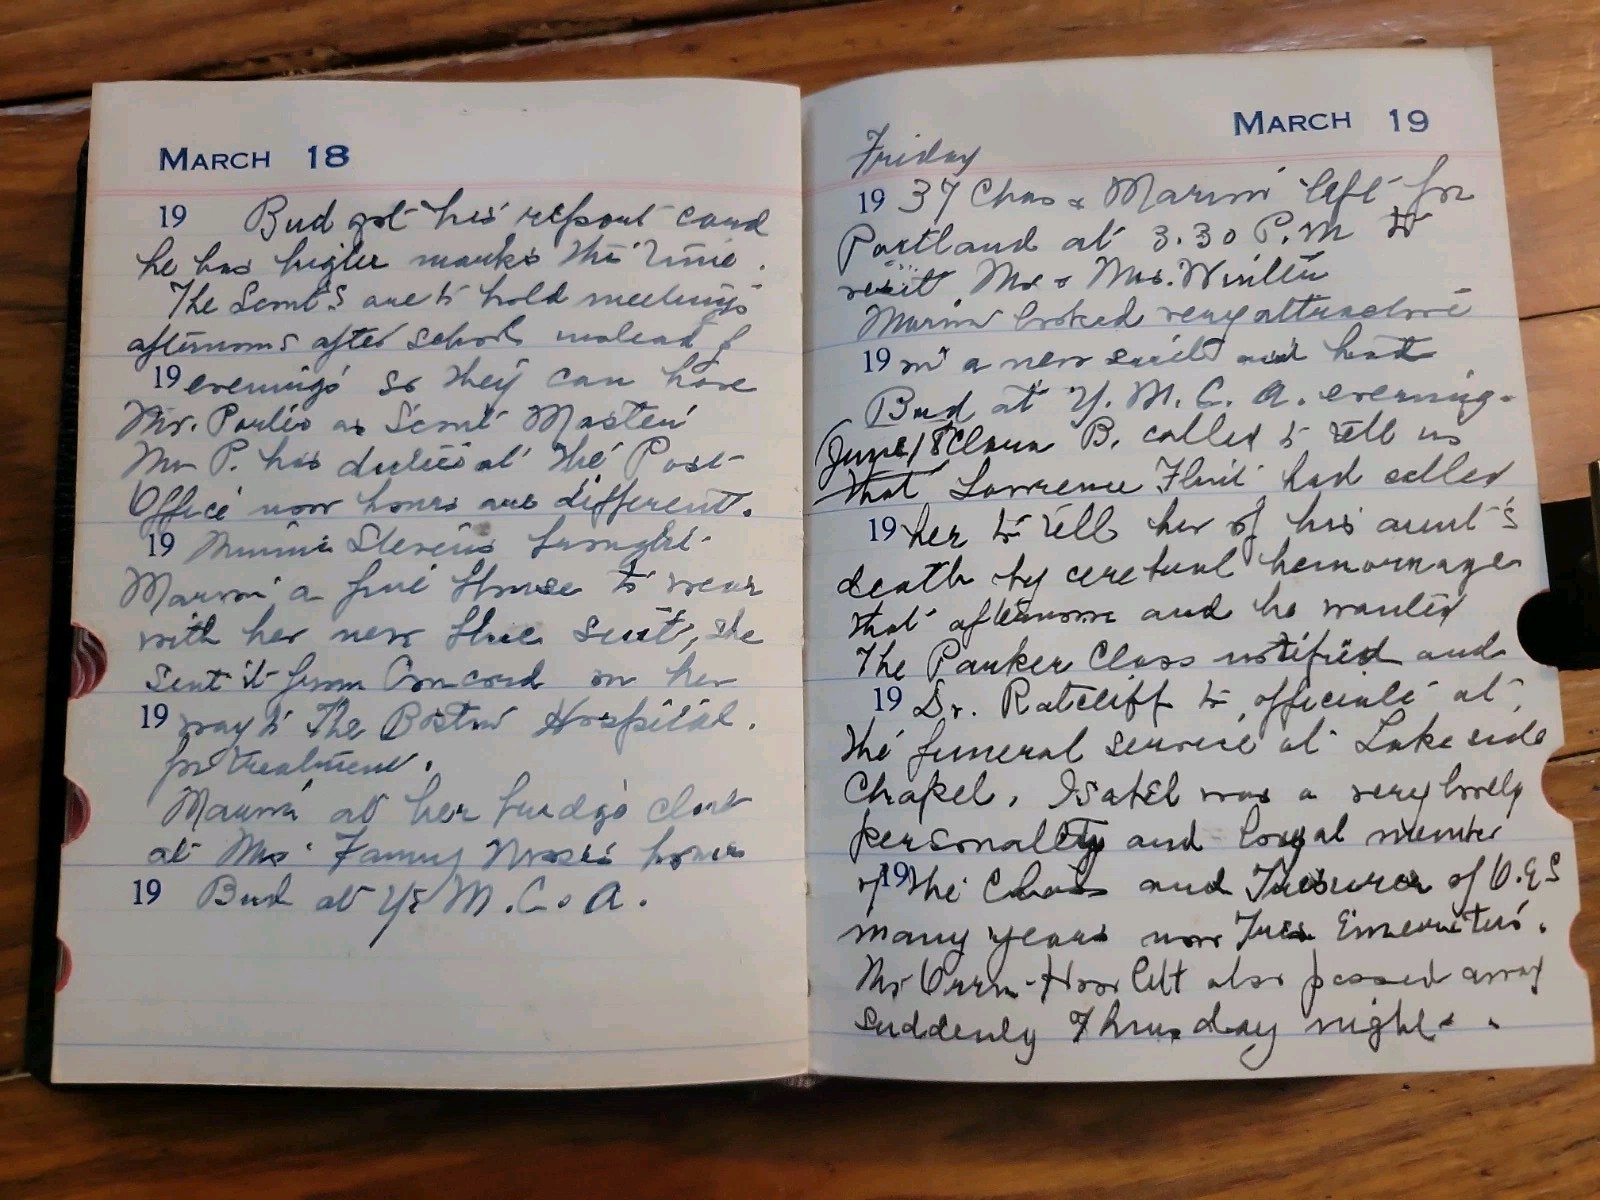 MARCH 18
19 Bud got his report card
he has higher marks this time.
The Scouts are to hold meetings
afternoons after school instead of
19 evenings so they can have
Mr. as Scout Master
Mr P. has duties at the Post
Office now hours are different.
19 Minnie Stevens brought
Marion a fine blouse to wear
with her new blue suit, she
sent it from Concord on her
19 way to the Boston Hospital.
for treatment.
Marion at her bridge club
at Mrs. Fanny home
19 Bud at Y. M. C. A.
MARCH 19
Friday
19 37 Chas & Marion left for
Portland at 3.30 P.M to
visit Mr & Mrs. Winter
Marion looked very attractive
19 in a new suit and hat
Bud at Y. M. C. A. evening.
(June 18 Clara B. called to tell us
that Lawrence Flint had called
19 her to tell her of his aunt's
death by cerebral hemorrhage
that afternoon and he wanted
the Parker Class notified and
19 Dr. Ratcliff to officiate at
the funeral service at Lakeside
Chapel. Isabel was a very lovely
personality and loyal member
19 of the Class and Treasurer of O.E.S
many years now Tres Emeritus.
Mr Orrin also passed away
suddenly Thursday night.